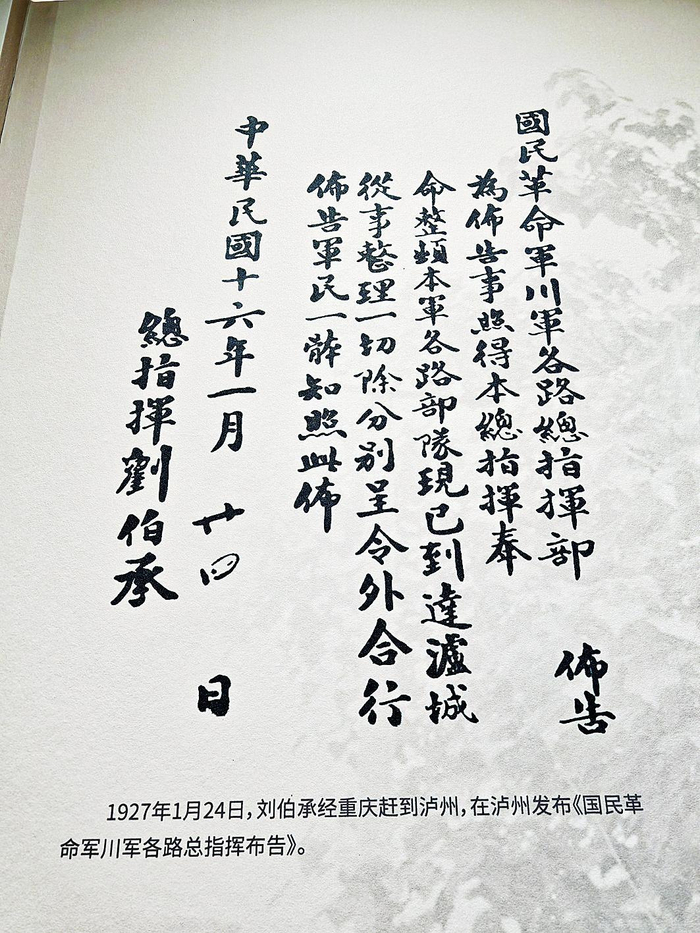 國民革命軍川軍各路總指揮部
佈告
為佈告事照得本總指揮奉
命整頓本軍各路部隊現已到達瀘城
從事整理一切除分别呈令外合行
佈告軍民一體知照此佈
中華民國十六年一月廿四日
總指揮劉伯承
1927年1月24日,刘伯承经重庆赶到泸州,在泸州发布《国民革
命军川军各路总指挥布告》。